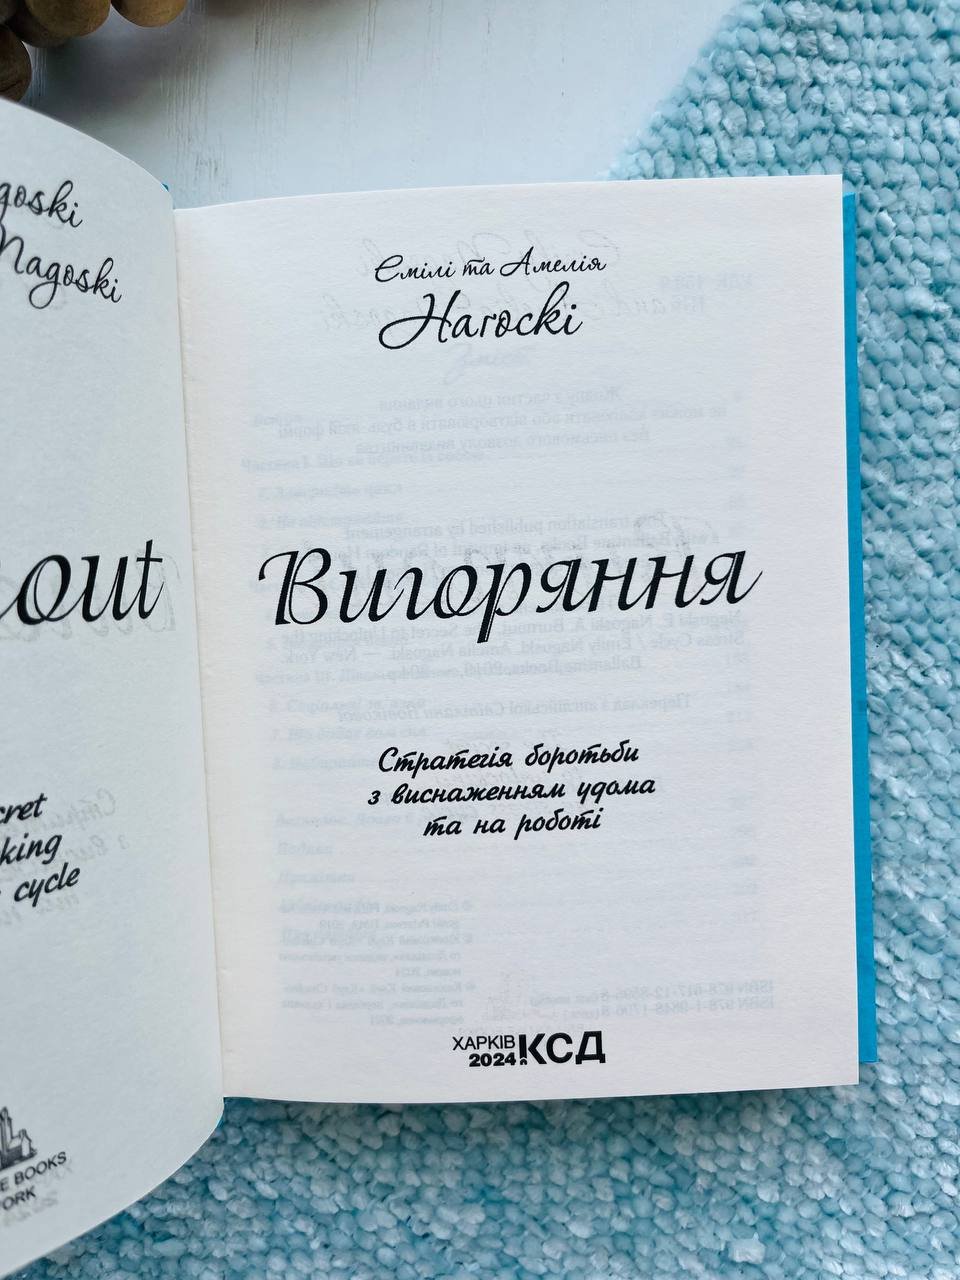 goski
Nagoski
out
cret
king
cycle
E BOOKS
ORK
Емілі та Амелія
Наґоскі
Вигоряння
Стратегія боротьби
з виснаженням удома
та на роботі
ХАРКІВ
2024
КСД